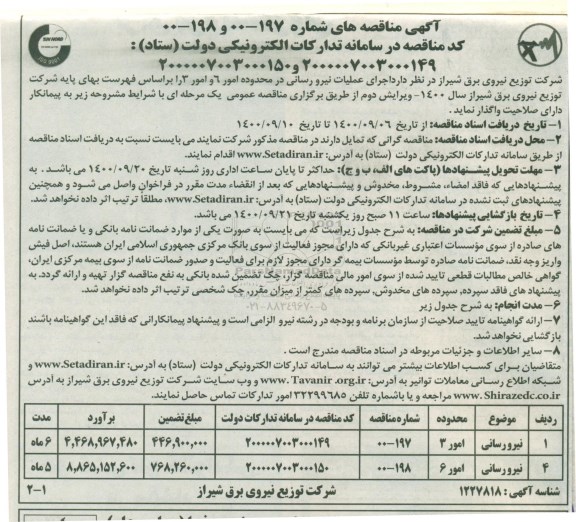 آگهی مناقصه های شماره ۱۹۷-۰۰ و ۱۹۸-۰۰
کد مناقصه در سامانه تدارکات الکترونیکی دولت (ستاد):
۲۰۰۰۰۰۷۰۰۳۰۰۰۱۴۹ و ۲۰۰۰۰۰۷۰۰۳۰۰۰۱۵۰
شرکت توزیع نیروی برق شیراز در نظر دارد اجرای عملیات نیرو رسانی در محدوده امور ۶ و امور ۳ را براساس فهرست بهای پایه شرکت
توزیع نیروی برق شیراز سال ۱۴۰۰- ویرایش دوم از طریق برگزاری مناقصه عمومی یک مرحله ای با شرایط مشروحه زیر به پیمانکار
دارای صلاحیت واگذار نماید.
۱- تاریخ دریافت اسناد مناقصه: از تاریخ ۱۴۰۰/۰۹/۰۶ تا تاریخ ۱۴۰۰/۰۹/۱۰
۲- محل دریافت اسناد مناقصه: مناقصه گرانی که تمایل دارند در مناقصه مذکور شرکت نمایند می بایست نسبت به دریافت اسناد مناقصه
از طریق سامانه تدارکات الکترونیکی دولت (ستاد) به آدرس: www.Setadiran.ir اقدام نمایند.
۳- مهلت تحویل پیشنهادها (پاکت های الف، ب و ج): حداکثر تا پایان ساعت اداری روز شنبه تاریخ ۱۴۰۰/۰۹/۲۰ می باشد. به
پیشنهادهایی که فاقد امضاء، مشروط، مخدوش و پیشنهادهایی که بعد از انقضاء مدت مقرر در فراخوان واصل می شود و همچنین
پیشنهادهای ثبت نشده در سامانه تدارکات الکترونیکی دولت (ستاد) به آدرس: www.Setadiran.ir، مطلقا ترتیب اثر داده نخواهد شد.
۴- تاریخ بازگشایی پیشنهادها: ساعت ۱۱ صبح روز یکشنبه تاریخ ۱۴۰۰/۰۹/۲۱ می باشد.
۵- مبلغ تضمین شرکت در مناقصه: به شرح جدول زیر است که می بایست به صورت یکی از موارد ضمانت نامه بانکی و یا ضمانت نامه
های صادره از سوی مؤسسات اعتباری غیربانکی که دارای مجوز فعالیت از سوی بانک مرکزی جمهوری اسلامی ایران هستند، اصل فیش
واریز وجه نقد، ضمانت نامه صادره توسط مؤسسات بیمه گر دارای مجوز لازم برای فعالیت و صدور ضمانت نامه از سوی بیمه مرکزی ایران،
گواهی خالص مطالبات قطعی تایید شده از سوی امور مالی مناقصه گزار، چک تضمین شده بانکی به نفع مناقصه گزار تهیه و ارائه گردد. به
پیشنهاد های فاقد سپرده، سپرده های مخدوش، سپرده های کمتر از میزان مقرر، چک شخصی ترتیب اثر داده نخواهد شد.
۶- مدت انجام: به شرح جدول زیر
۷- ارائه گواهینامه تایید صلاحیت از سازمان برنامه و بودجه در رشته نیرو الزامی است و پیشنهاد پیمانکارانی که فاقد این گواهینامه باشند
بازگشایی نخواهد شد.
۸- سایر اطلاعات و جزئیات مربوطه در اسناد مناقصه مندرج است.
متقاضیان برای کسب اطلاعات بیشتر می توانند به سامانه تدارکات الکترونیکی دولت (ستاد) به آدرس: www.Setadiran.ir و
شبکه اطلاع رسانی معاملات توانیر به آدرس: www.Tavanir.org.ir و وب سایت شرکت توزیع نیروی برق شیراز به آدرس
www.Shirazedc.co.ir مراجعه و یا باشماره تلفن ۳۲۲۹۹۶۸۵ امور تدارکات تماس حاصل نمایند.
ردیف موضوع محدوده شماره مناقصه کد مناقصه در سامانه تدارکات دولت مبلغ تضمین برآورد مدت
۱ نیرو رسانی امور ۳ ۱۹۷-۰۰ ۲۰۰۰۰۰۷۰۰۳۰۰۰۱۴۹ ۴۴۶,۹۰۰,۰۰۰ ۴,۴۶۸,۹۶۷,۴۸۰ ۶ ماه
۴ نیرو رسانی امور ۶ ۱۹۸-۰۰ ۲۰۰۰۰۰۷۰۰۳۰۰۰۱۵۰ ۷۶۸,۲۶۰,۰۰۰ ۸,۸۶۵,۱۵۲,۶۰۰ ۵ ماه
شناسه آگهی: ۱۲۲۷۸۱۸ شرکت توزیع نیروی برق شیراز ۲-۱